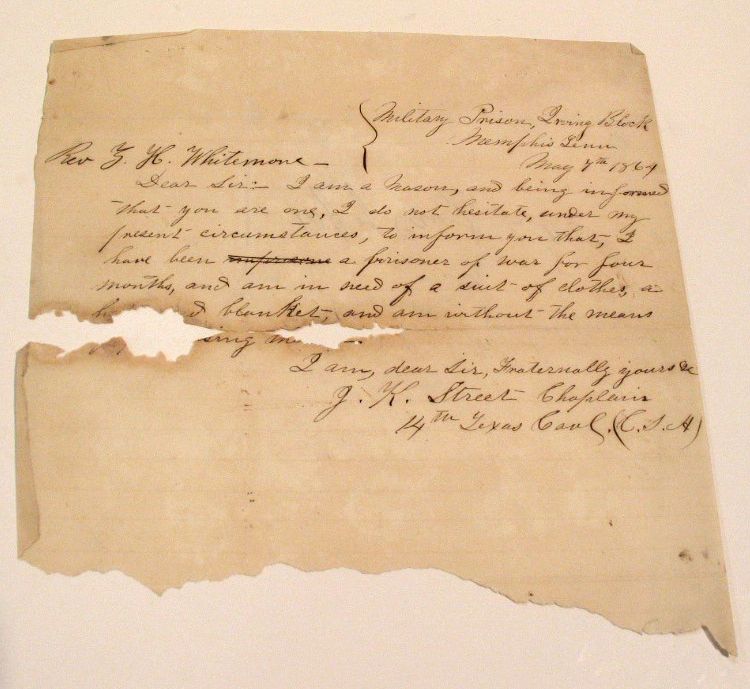 Military Prison, Irving Block
Memphis Tenn
May 7th 1864
Rev Z. H. Whitemore –
Dear Sir:– I am a Mason, and being informed
that you are one, I do not hesitate, under my
present circumstances, to inform you that, I
have been a prisoner of war for four
months, and am in need of a suit of clothes, a
blanket, and am without the means
I am, dear Sir, Fraternally yours &c
J. K. Street Chaplain
14th Texas Cavl. (C.S.A)